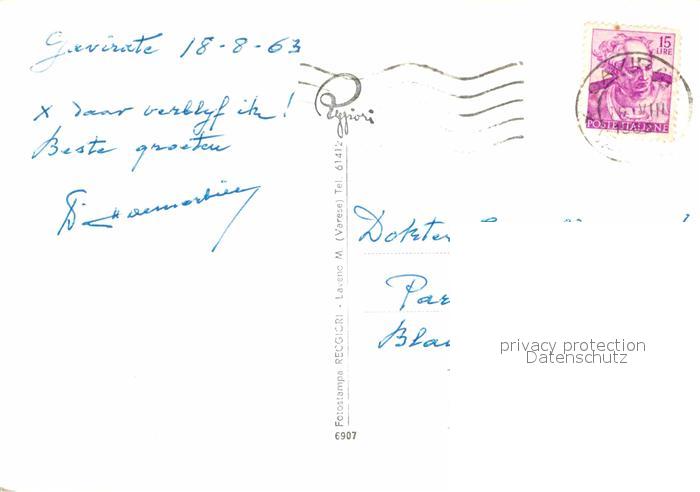 Gavirate 18-8-63
x daar verblijf ik!
Beste groeten
Reggiori
Fotostampa REGGIORI - Laveno M. (Varese) Tel. 61412
6907
15
LIRE
POSTE ITALIANE
VIII
Dokter
Par
Bla
privacy protection
Datenschutz